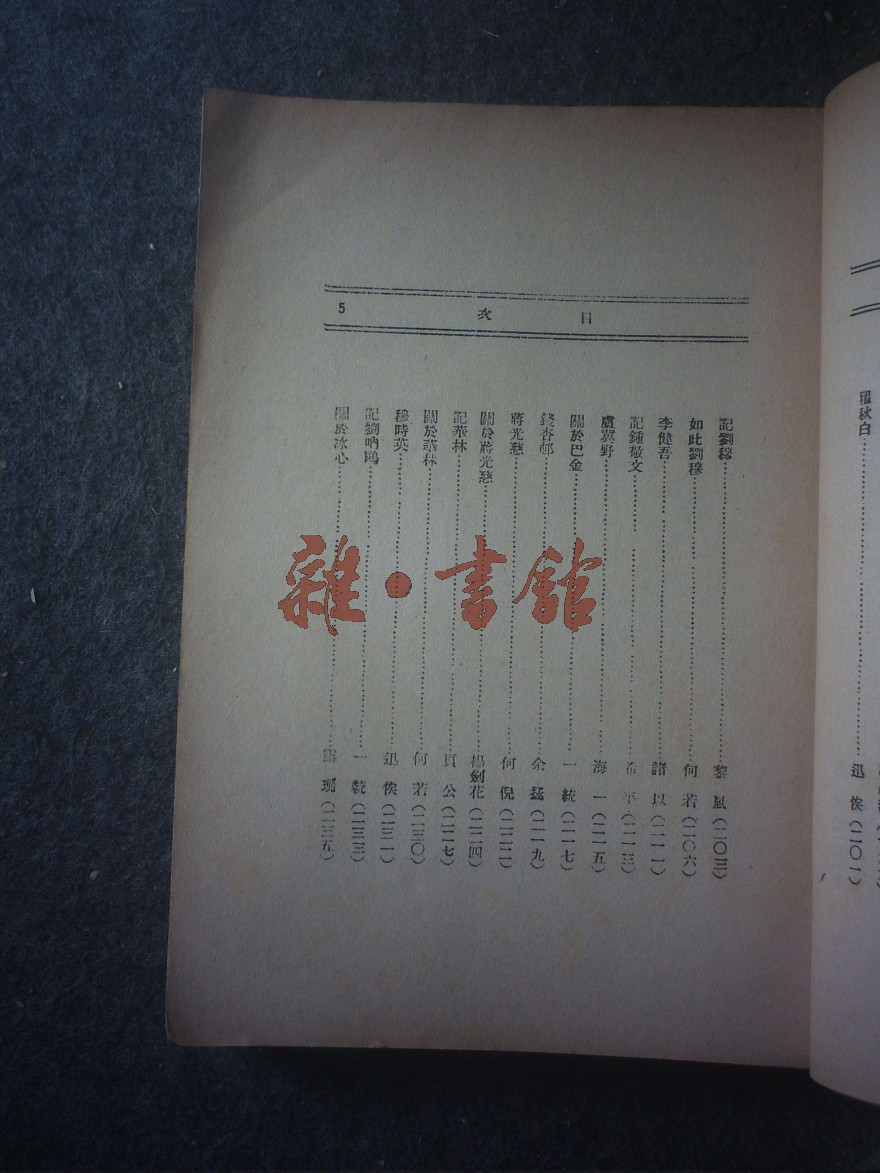 瞿秋白……迅俟(二〇一)
目次 5
記劉穆……黎風(二〇三)
如此劉穆……何若(二〇六)
李健吾……諸以(二一一)
記鍾敬文……希平(二一三)
盧冀野……海一(二一五)
關於巴金……一統(二一七)
錢杏邨……余猛(二一九)
蔣光慈……何倪(二二二)
關於蔣光慈……楊劍花(二二四)
記華林……頁公(二二七)
關於華林……何若(二三〇)
穆時英……迅俟(二三一)
記劉吶鷗……一統(二三三)
關於冰心……(二三五)
雜·書館